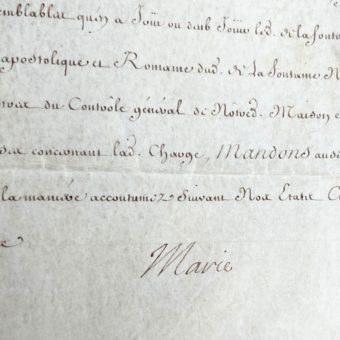 emblablee quen a Jouir ou deub Jouir led. de la font
apostolique et Romaine dud. de La fontaine N
du Contrôle général de Notred. Maison e
concernant lad. Charge, Mandons aud
la maniere accoutumez Suivant Nos Etats
Marie